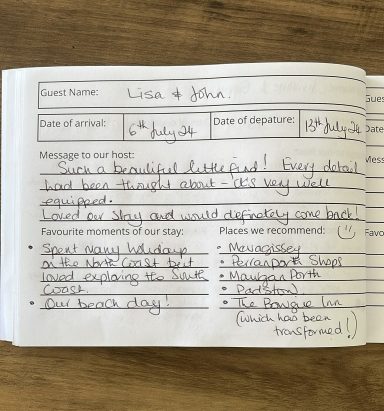 Guest Name: Lisa & John.
Date of arrival: 6th July 24 Date of depature: 13th July 24
Message to our host:
Such a beautiful little find! Every detail
had been thought about - it's very well
equipped.
Loved our stay and would definetely come back!
Favourite moments of our stay:
• Spent many holidays
on the North Coast but
loved exploring the South
Coast.
• Our beach day!
Places we recommend:
• Mevagissey
• Perranporth Shops
• Mawgan Porth
• Padstow
• The Bowgie Inn
(which has been
transformed!)
Gues
Date
Mess
Favo